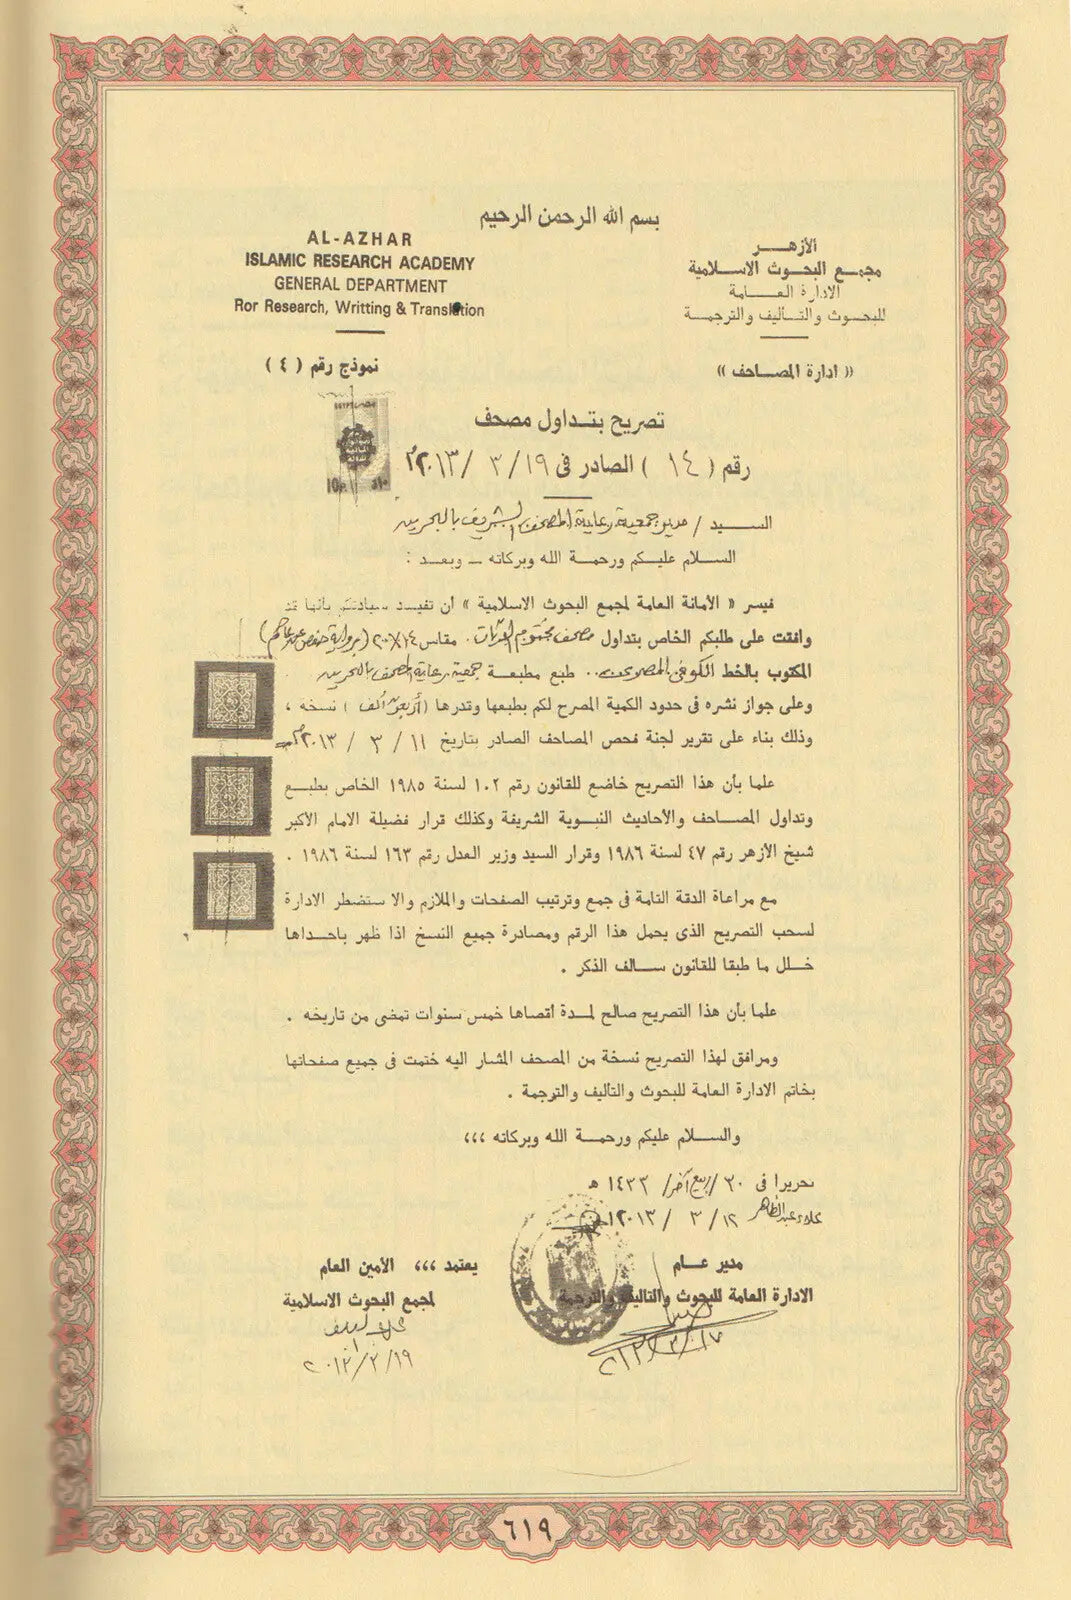 بسم الله الرحمن الرحيم
AL-AZHAR
ISLAMIC RESEARCH ACADEMY
GENERAL DEPARTMENT
Ror Research, Writting & Translation
الأزهـــر
مجمـع البحـوث الاسـلامية
الادارة العـــامة
للبحـوث والتـأليف والترجمـة
نموذج رقم ( ٤ )
« ادارة المصـاحف »
تصريح بتـداول مصحف
رقم ( ١٤ ) الصادر فى ١٩ / ٣ / ٢٠١٣م
السـيد / مدير جمعية رعاية المصحف الشريف بالبحرين
السـلام عليـكم ورحمـة الله وبركاته ـ وبعـد :
فيسر « الأمانة العامة لمجمع البحوث الاسلامية » ان تفيـد سيادتكم بأنها قد
وافقت على طلبكم الخاص بتداول مصحف مقاس ١٤×٢٠ (برواية حفص عن عاصم)
المكتوب بالخط الكوفى المصرى .. طبع مطبعـة جمعية رعاية المصحف بالبحرين .
وعلى جواز نشره فى حدود الكمية المصرح لكم بطبعها وقدرها ( ألف ) نسخة ،
وذلك بناء على تقرير لجنة فحص المصاحف الصادر بتاريخ ١١ / ٣ / ٢٠١٣م
علما بأن هذا التصريح خاضع للقانون رقم ١٠٢ لسنة ١٩٨٥ الخاص بطبـع
وتداول المصـاحف والأحاديث النبـوية الشريفة وكذلك قرار فضيلة الامام الأكبر
شيخ الأزهر رقم ٤٧ لسنة ١٩٨٦ وقرار السيد وزير العدل رقم ١٦٣ لسنة ١٩٨٦ .
مع مراعاة الدقة التامة فى جمع وترتيب الصفحات والملازم والا ستضطر الادارة
لسحب التصريح الذى يحمل هذا الرقم ومصادرة جميع النسخ اذا ظهر باحـداها
خـلل ما طبقا للقانون سـالف الذكر .
علما بأن هذا التصريح صالح لمـدة أقصاها خمس سنوات تمضى من تاريخه .
ومرافق لهذا التصريح نسخة من المصحف المشار اليه ختمت فى جميع صفحاتها
بخاتم الادارة العامة للبحوث والتأليف والترجمة .
والسـلام عليكم ورحمـة الله وبركاته ،،،
تحريرا فى ٣٠ / ربيع آخر / ١٤٣٣ هـ
علاء عبد الظاهر ١٢ / ٣ / ٢٠١٣م
مدير عـام
الادارة العامة للبحوث والتاليف والترجمة
يعتمد ،،، الأمين العام
لمجمع البحوث الاسلامية
٢٠١٣/٣/١٧
٢٠١٣/٣/١٩
٦١٩